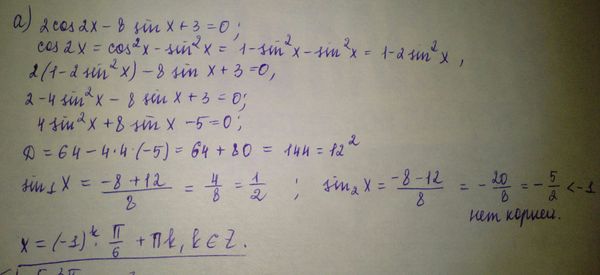 а) 2cos2x - 8 sinx + 3 = 0;
cos2x = cos²x - sin²x = 1 - sin²x - sin²x = 1 - 2sin²x,
2(1 - 2sin²x) - 8 sin x + 3 = 0,
2 - 4sin²x - 8 sin x + 3 = 0;
4sin²x + 8 sin x - 5 = 0;
D = 64 - 4·4·(-5) = 64 + 80 = 144 = 12²
sin₁x = (-8+12)/8 = 4/8 = 1/2 ; sin₂x = (-8-12)/8 = -20/8 = -5/2 < -1
нет корней.
x = (-1)ᵏ · π/6 + πk, k ∈ Z.